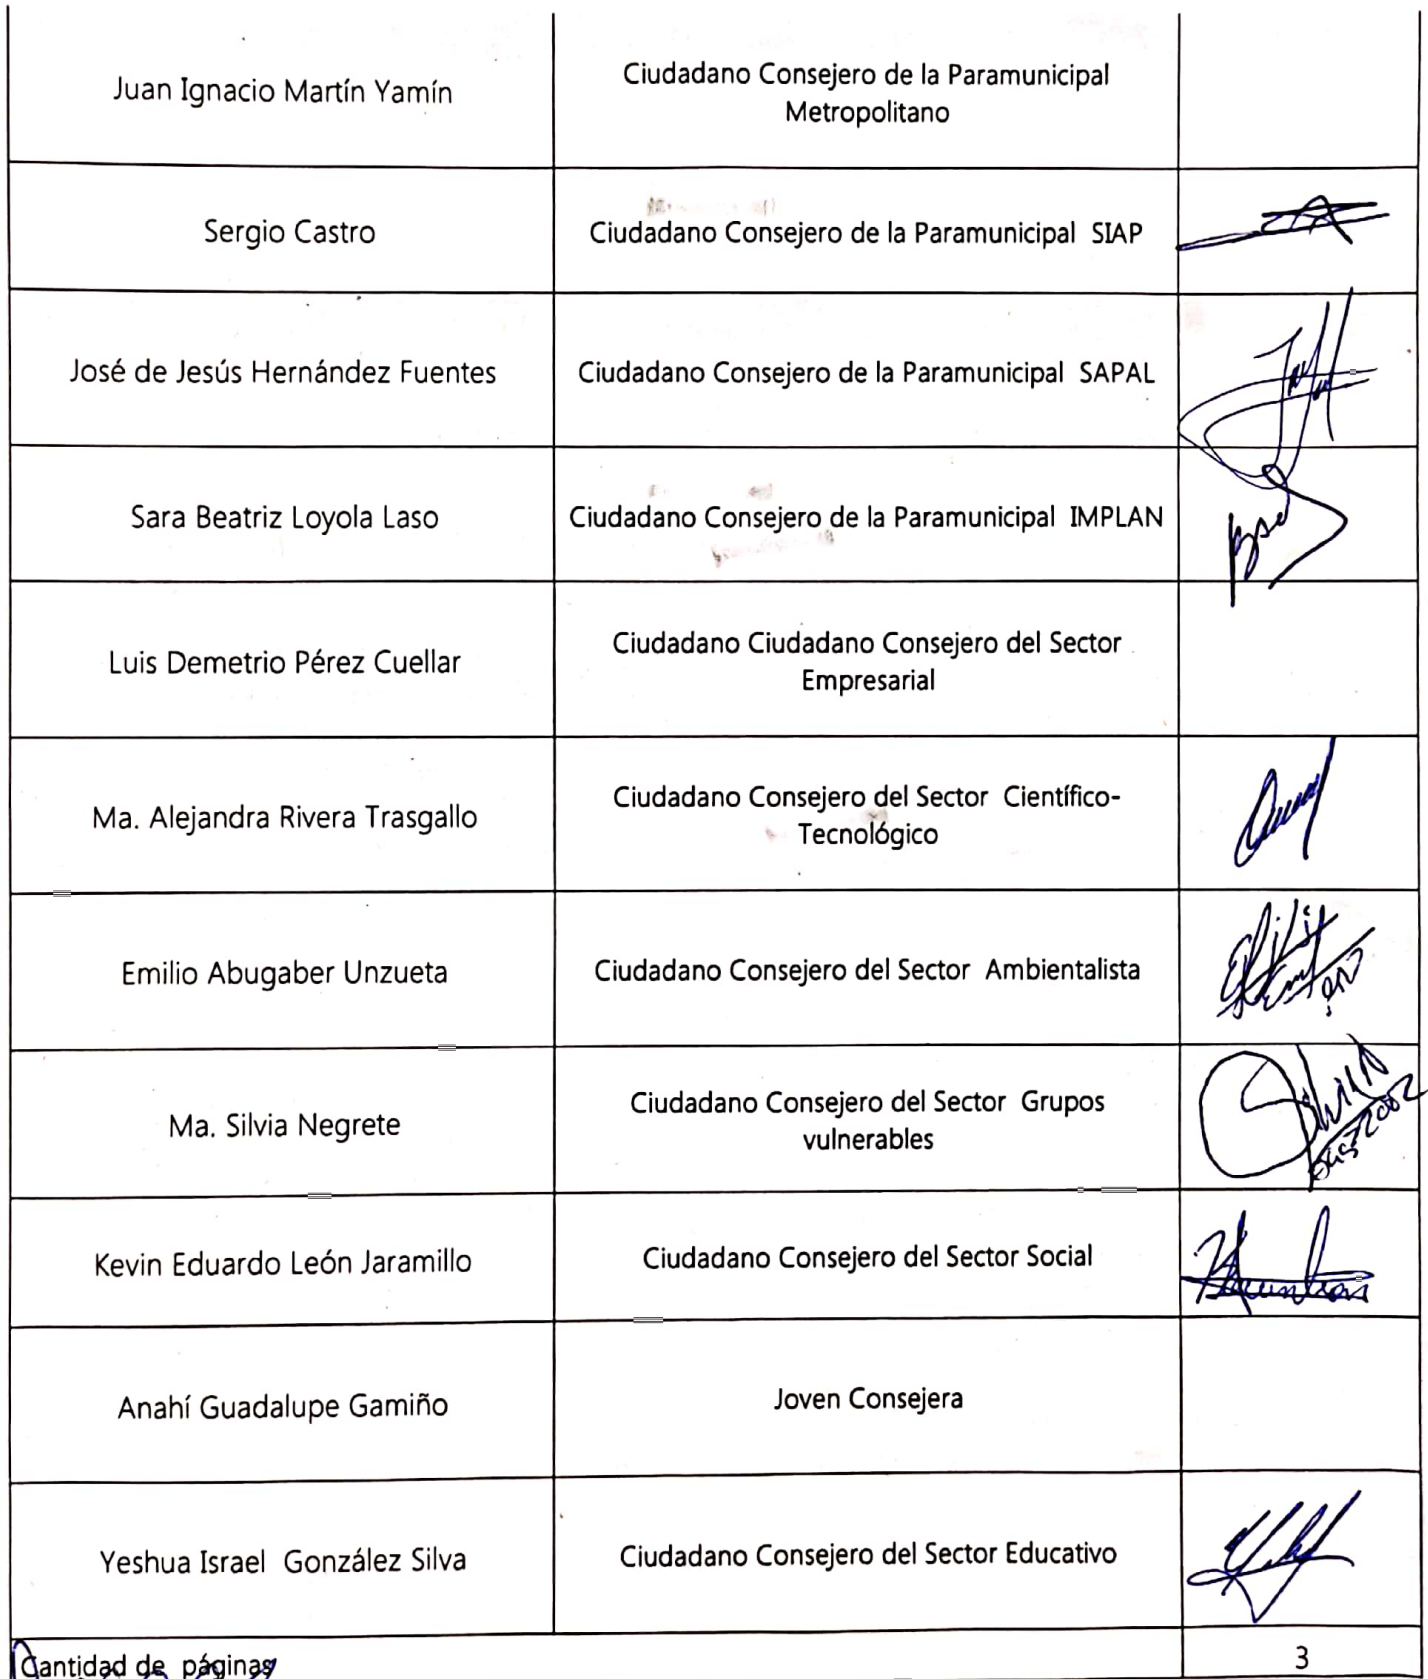 Juan Ignacio Martín Yamín
Ciudadano Consejero de la Paramunicipal
Metropolitano
Sergio Castro
Ciudadano Consejero de la Paramunicipal SIAP
José de Jesús Hernández Fuentes
Ciudadano Consejero de la Paramunicipal SAPAL
Sara Beatriz Loyola Laso
Ciudadano Consejero de la Paramunicipal IMPLAN
Luis Demetrio Pérez Cuellar
Ciudadano Ciudadano Consejero del Sector
Empresarial
Ma. Alejandra Rivera Trasgallo
Ciudadano Consejero del Sector Científico-
Tecnológico
Emilio Abugaber Unzueta
Ciudadano Consejero del Sector Ambientalista
Ma. Silvia Negrete
Ciudadano Consejero del Sector Grupos
vulnerables
Kevin Eduardo León Jaramillo
Ciudadano Consejero del Sector Social
Anahí Guadalupe Gamiño
Joven Consejera
Yeshua Israel González Silva
Ciudadano Consejero del Sector Educativo
Cantidad de páginas
3